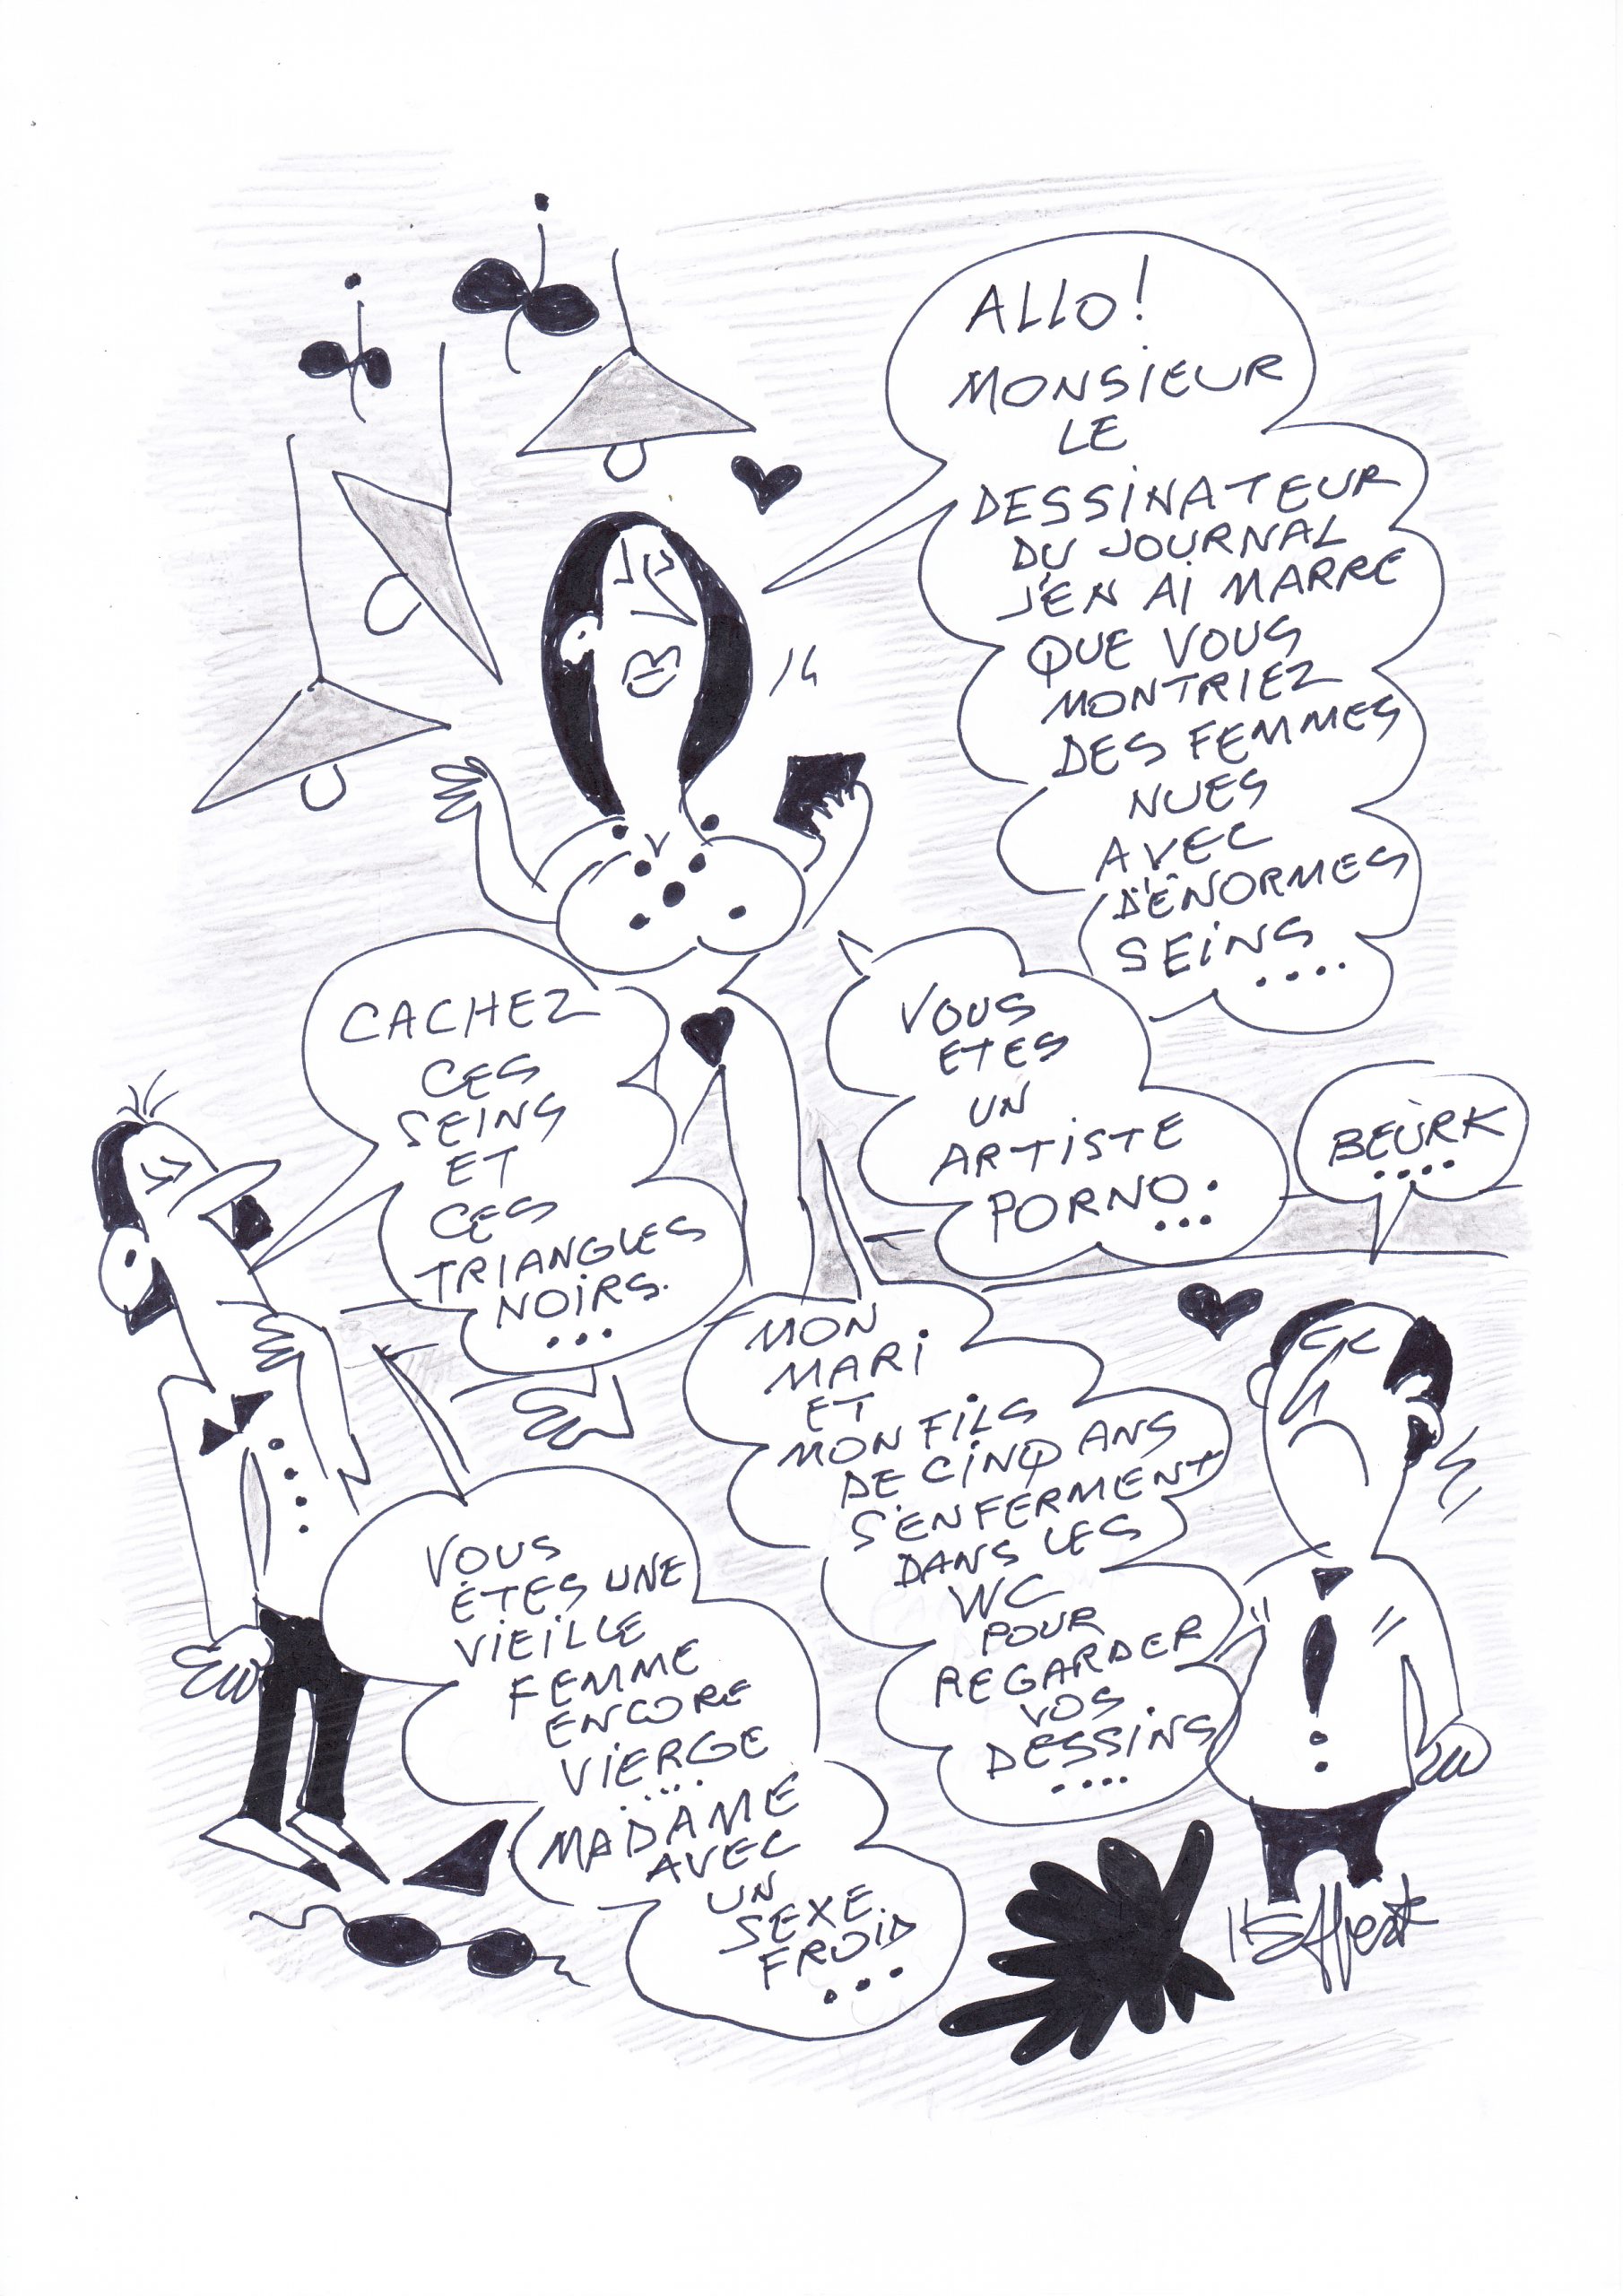 ALLO!
MONSIEUR
LE
DESSINATEUR
DU JOURNAL
J'EN AI MARRE
QUE VOUS
MONTRIEZ
DES FEMMES
NUES
AVEC
D'ÉNORMES
SEINS
....
CACHEZ
CES
SEINS
ET
CES
TRIANGLES
NOIRS.
...
VOUS
ETES
UN
ARTISTE
PORNO.
...
BEÙRK
....
MON
MARI
ET
MON FILS
DE CINQ ANS
S'ENFERMENT
DANS LES
WC
POUR
REGARDER
VOS
DESSINS
....
VOUS
ÉTES UNE
VIEILLE
FEMME
ENCORE
VIERGE
....
MADAME
AVEC
UN
SEXE
FROID
...